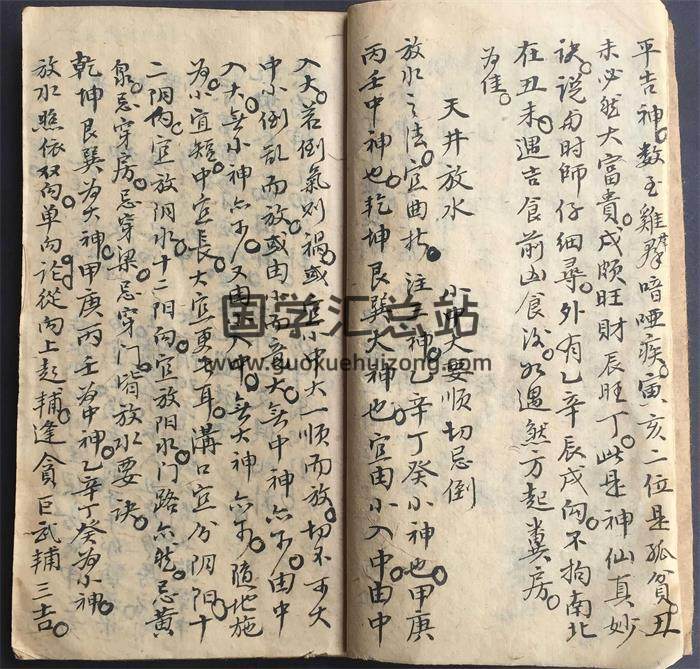 平吉神。数至雞群喑啞疾。寅亥二位是孤貧。丑
未必然大富貴。戌頗旺財辰旺丁。此是神仙真妙
诀。说与时師仔细尋。外有乙辛辰戌向。不拘南北
在丑未。遇吉食前凶食後。遇然方起糞房。
为佳。
天井放水 小中大要順切忌倒
放水之法。宜曲折。注三神。乙辛丁癸小神也。甲庚
丙壬中神也。乾坤艮巽大神也。宜由小入中。由中
入大。若倒氣则禍。或宜小中大一順而放。切不可大
中小倒乱而放。或由小而竟大。無中神亦可。由中
入大。無小神亦可。又由小入中。無大神亦可。隨地施
为。小宜短。中宜長。大宜一更長耳。溝口宜分阴阳。十
二阴向宜放阴水。十二阳向宜放阳水。门路亦然。忌黄
泉。忌穿房。忌穿梁。忌穿门。皆放水要诀。
乾坤艮巽为大神。甲庚丙壬为中神。乙辛丁癸为小神。
放水照依双向单向论。從向上起輔。逢貪巨武輔三吉。
国学汇总站
www.guoxuehuizong.com